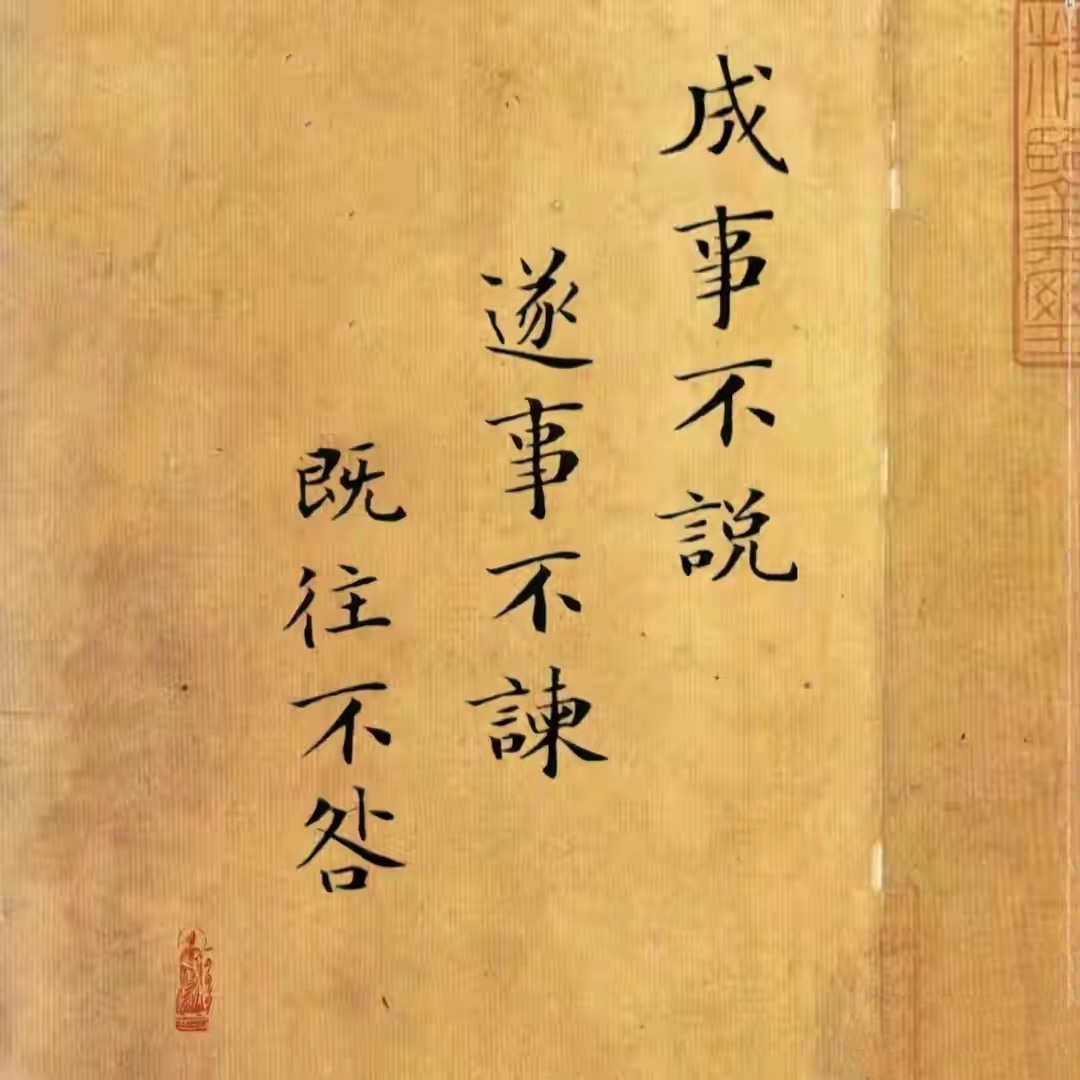 成事不説
遂事不諫
既往不咎